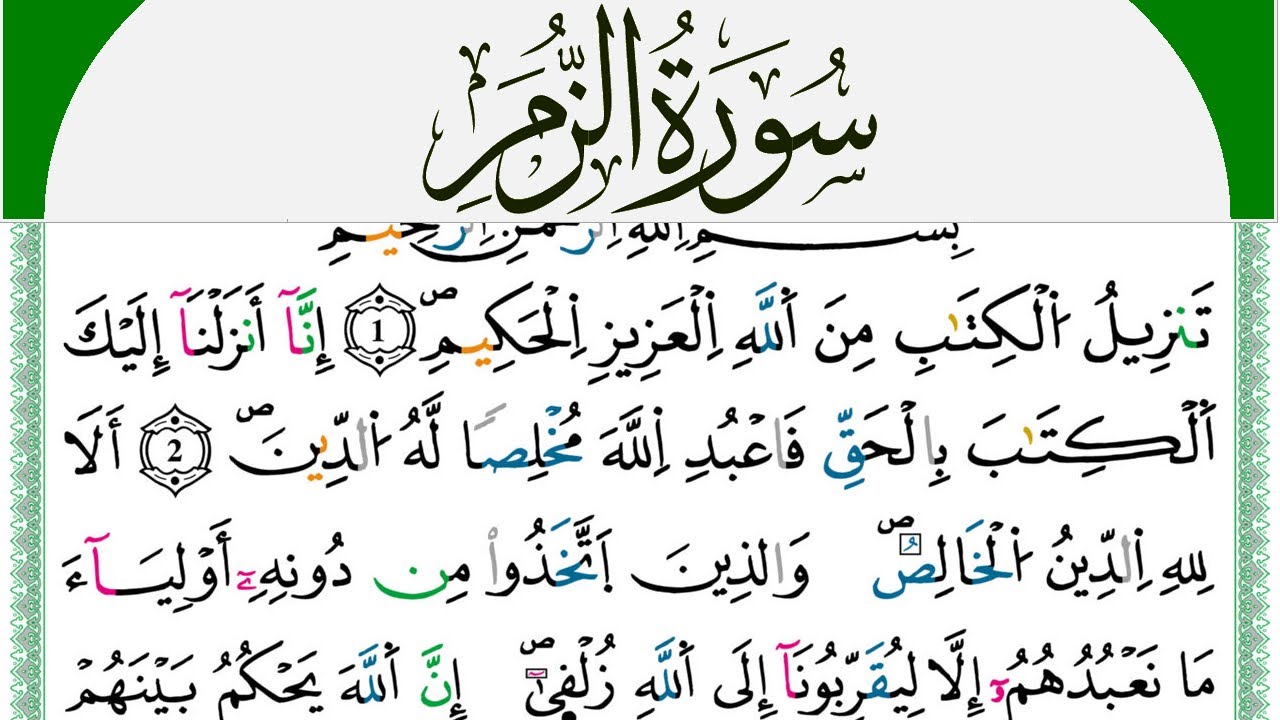 سُورَةُ الزُّمَرِ
بِسْمِ اِللَّهِ اِلرَّحْمَٰنِ اِلرَّحِيمِ
تَنزِيلُ اُ۬لْكِتَٰبِ مِنَ اَ۬للَّهِ اِ۬لْعَزِيزِ اِ۬لْحَكِيمِۖ 1 إِنَّآ أَنزَلْنَآ إِلَيْكَ
اَ۬لْكِتَٰبَ بِالْحَقِّ فَاعْبُدِ اِ۬للَّهَ مُخْلِصاً لَّهُ اُ۬لدِّينَۖ 2 أَلَا
لِلهِ اِ۬لدِّينُ اُ۬لْخَالِصُۖ وَالذِينَ اَ۪تَّخَذُوا۟ مِن دُونِهِۦٓ أَوْلِيَآءَ
مَا نَعْبُدُهُمُۥٓ إِلَّا لِيُقَرِّبُونَآ إِلَى اَ۬للَّهِ زُلْفَىٰٓۖ إِنَّ اَ۬للَّهَ يَحْكُمُ بَيْنَهُمْ